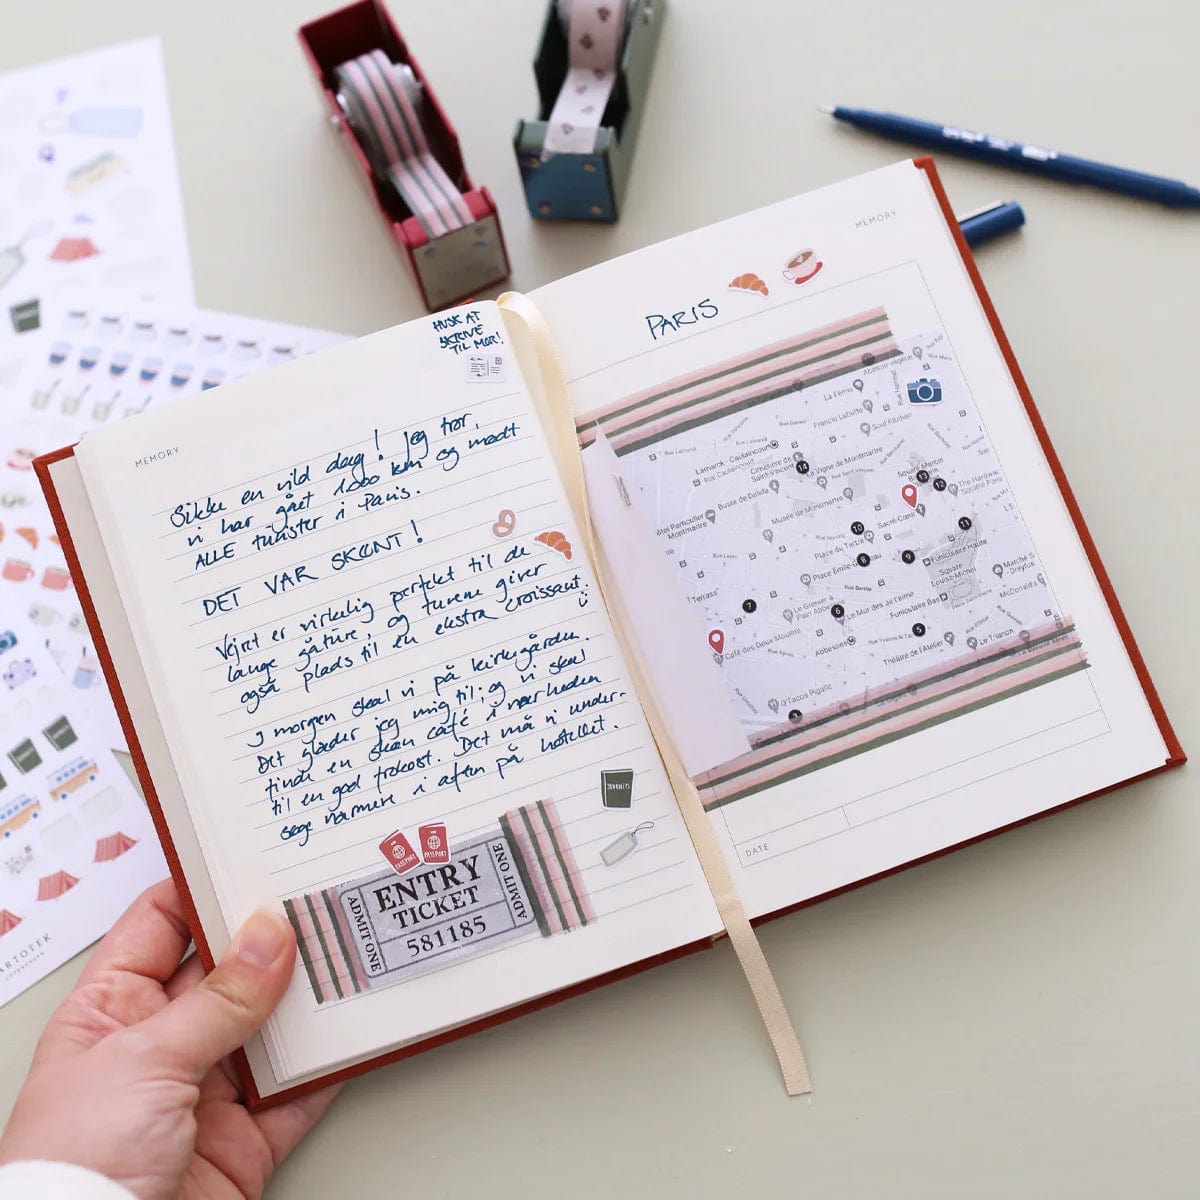 HUSK AT
SKRIVE
TIL MOR!
MEMORY
Sikke en vild dag! Jeg tror,
vi har gået 1000 km og mødt
ALLE turister i Paris.
DET VAR SKØNT!
Vejret er virkelig perfekt til de
lange gåture, og turene giver
også plads til en ekstra croissant.
I morgen skal vi på kirkegården.
Det glæder jeg mig til, og vi skal
finde en skøn café i nærheden
til en god frokost. Det må vi under-
søge nærmere i aften på hotellet.
JOURNEYS
PASSPORT
PASSPORT
ADMIT ONE
ENTRY
TICKET
581185
ADMIT ONE
MEMORY
PARIS
Abattoir végétal
La Fémo
Francis Labutte
Soul Kitchen
Rue Lamarck
Lamarck - Caulaincourt
Rue Caulaincourt
Cimetière de
Saint-Vincent
14
Vigne de Montmartre
Rue Saint-Vincent
Buste de Dalida
Musée de Montmartre
13
12
The Hardware
Société Paris
Sacré-Cœur
11
10
Place du Tertre
8
9
Funiculaire Haute
Square
Louise-Michel
Place Émile-G
Marché S
Dreyfus
McDonald's
7
6
Le Mur des Je t'aime
Funiculaire Bas
5
Café des Deux Moulins
Abbesses
Théâtre de l'Atelier
Le Trianon
O'Tacos Pigalle
3
DATE
ARTOTEK
COPENHAGEN